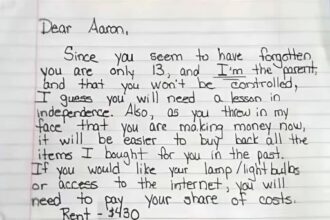 Dear Aaron,
Since you seem to have forgotten
you are only 13, and I'm the parent,
and that you won't be controlled,
I guess you will need a lesson in
independence. Also, as you threw in my
face that you are making money now,
it will be easier to buy back all the
items I bought for you in the past.
If you would like your lamp/lightbulbs
or access to the internet, you will
need to pay your share of costs.
Rent - $430